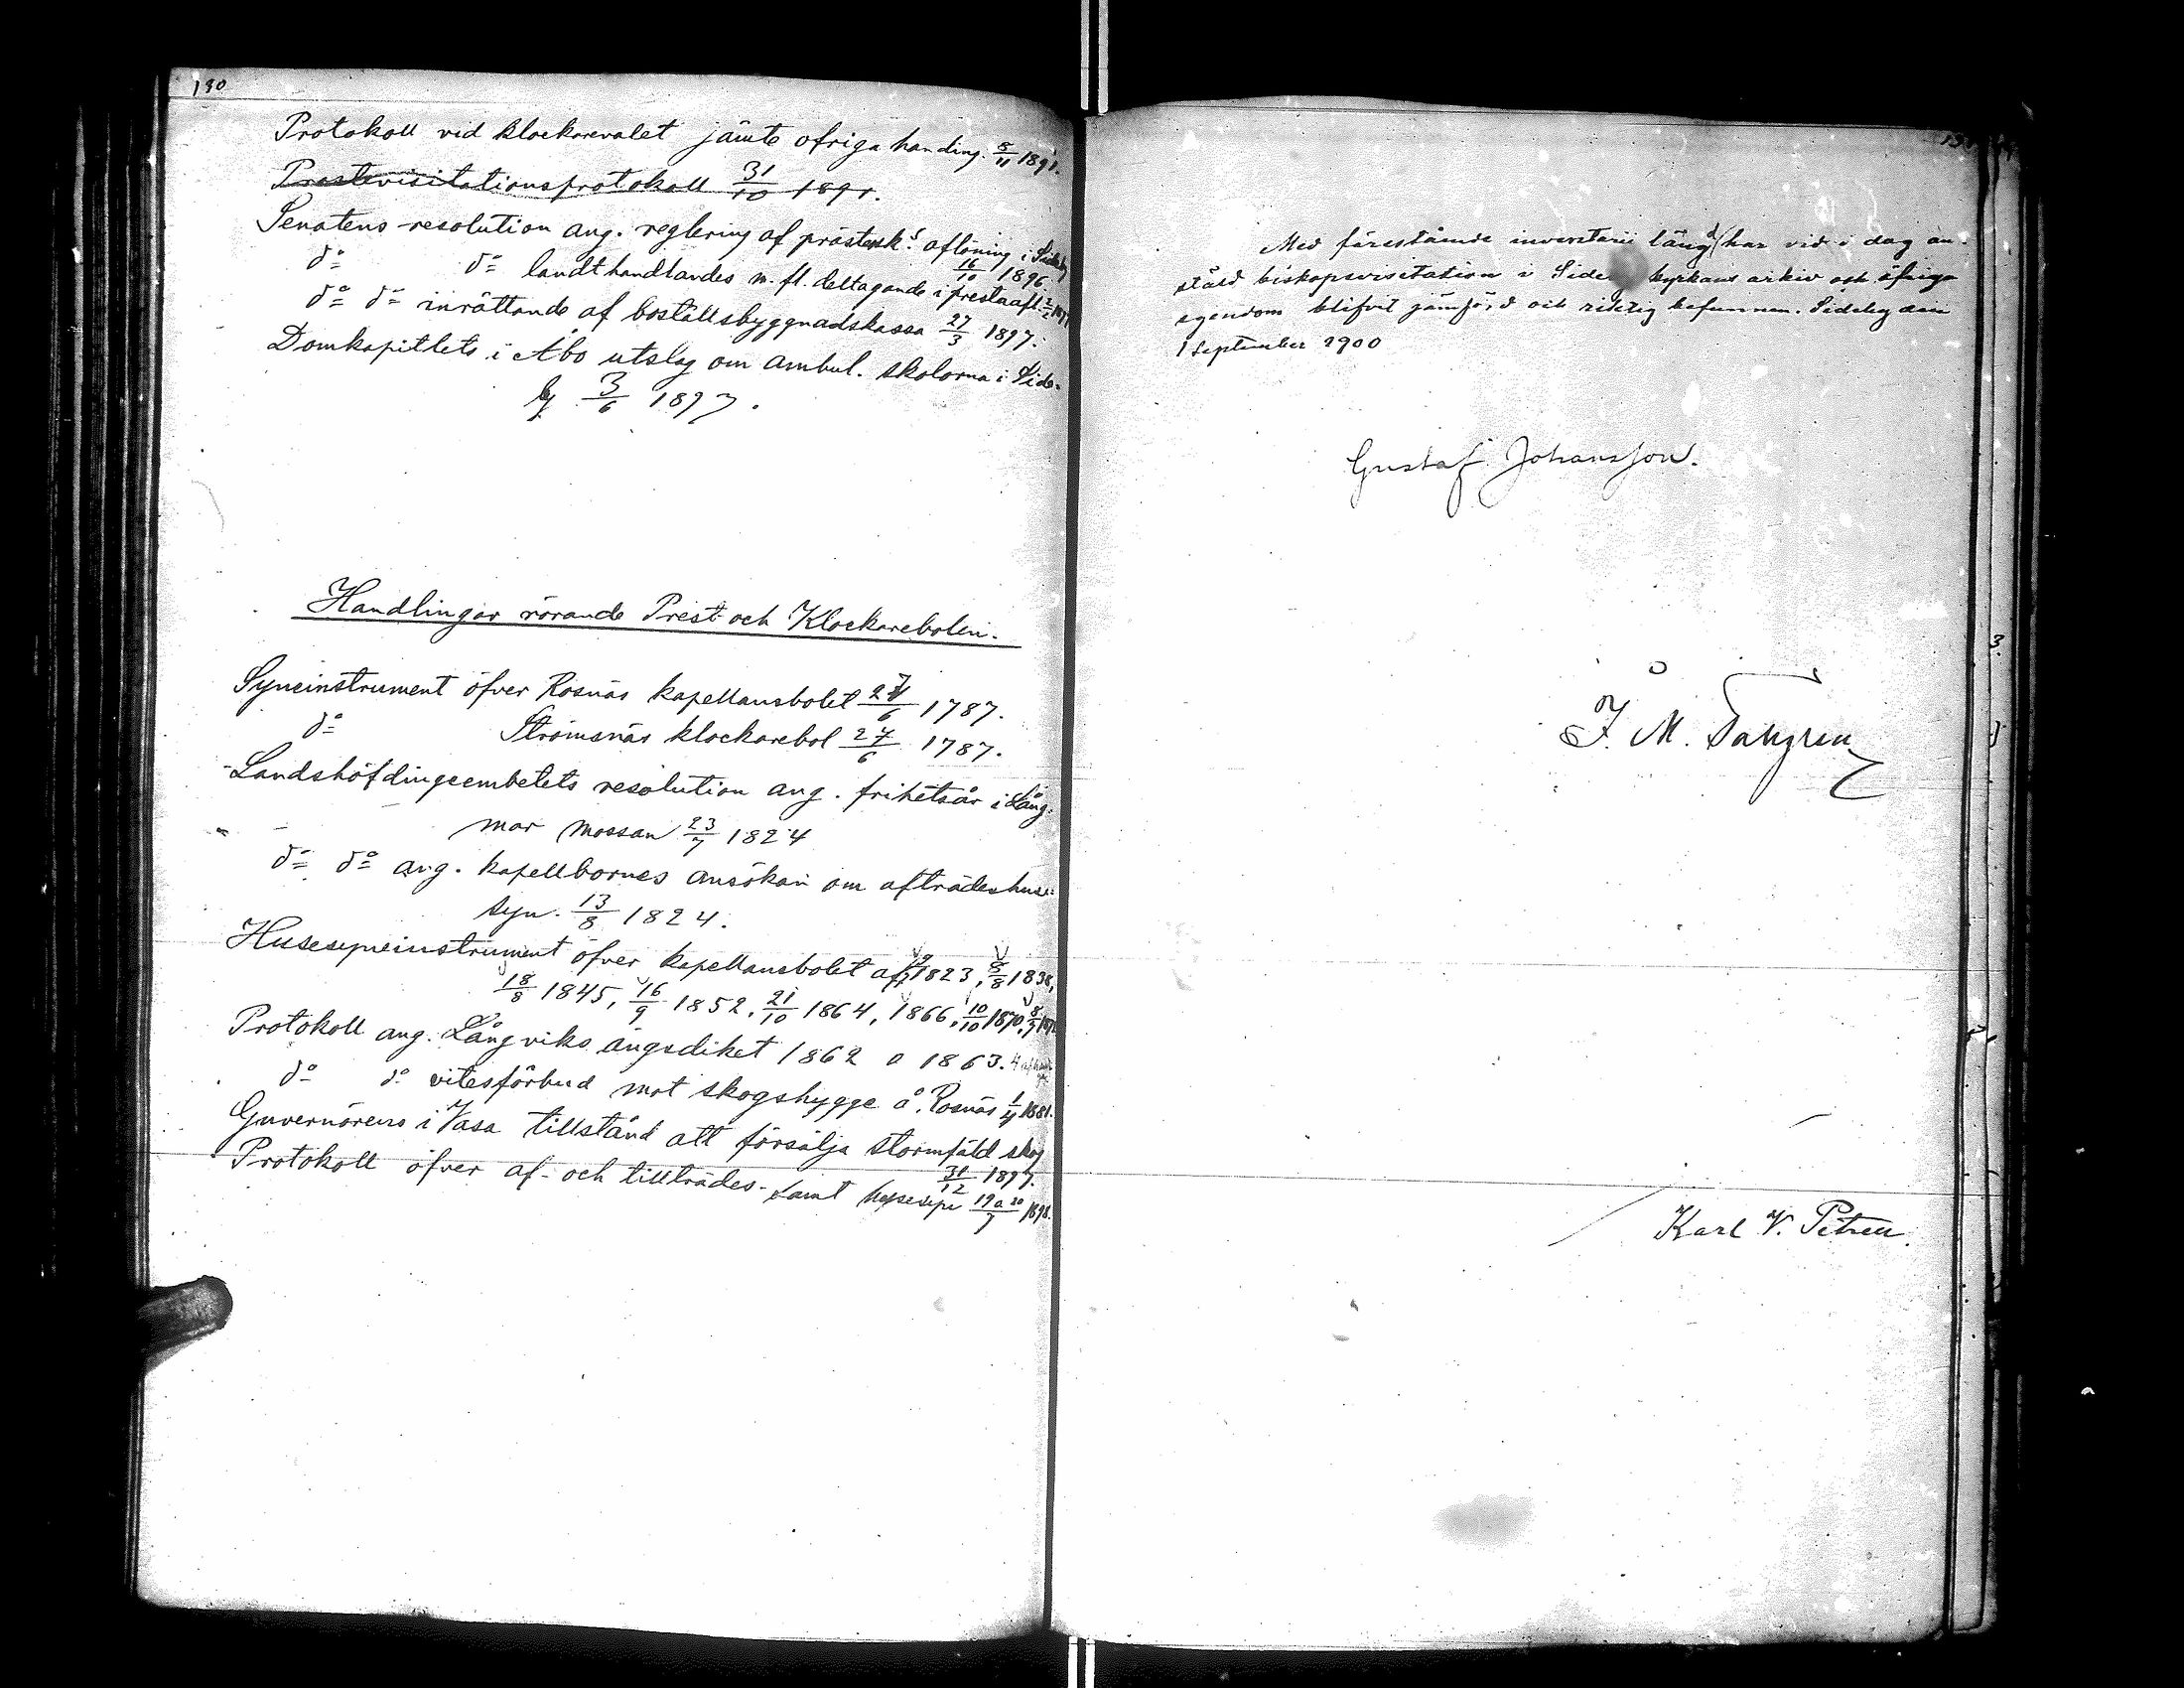 130
Protokoll vid klockarevalet jämte ofriga handing. 8/11 1891.
Prostevisitationsprotokoll 31/10 1891.
Senatens resolution ang. reglering af prästersks aflöning i Sideby
do do landthandlandes m. fl. deltagande i prestaafl. 16/10 1896.
do do inrättande af boställsbyggnadskassa 27/3 1897.
Domkapitlets i Åbo utslag om ambul. skolorna i Side-
by 3/6 1897.
Handlingar rörande Prest- och Klockarebolen.
Syneinstrument öfver Rosnäs kapellansbolet 27/6 1787.
do Strömsnäs klockarebol 27/6 1787.
Landshöfdingeembetets resolution ang. frihetsår i Lång-
mar mossan 23/7 1824
do do ang. kapellbornes ansökan om afträdeshuse-
syn. 13/8 1824.
Husesyneinstrument öfver kapellansbolet af 1823, 8/8 1838,
18/8 1845, 16/9 1852, 21/10 1864, 1866, 10/10 1870, 8/7
Protokoll ang. Långviks ängsdiket 1862 o 1863.
do do vitesförbud mot skogshygge å Rosnäs 1/4 1881.
Guvernörens i Vasa tillstånd att försälja stormfäld skog
31/12 1897.
Protokoll öfver af- och tillträdes- samt husesyn 19 o 20/7 1898.
Med förestående inventarii längd har vid i dag an-
stäld biskopsvisitation i Sideby kyrkans arkiv och öfriga
egendom blifvit jämförd och riktig befunnen. Sideby den
1 September 1900
Gustaf Johansson.
J. M.
Karl V. Petrell.